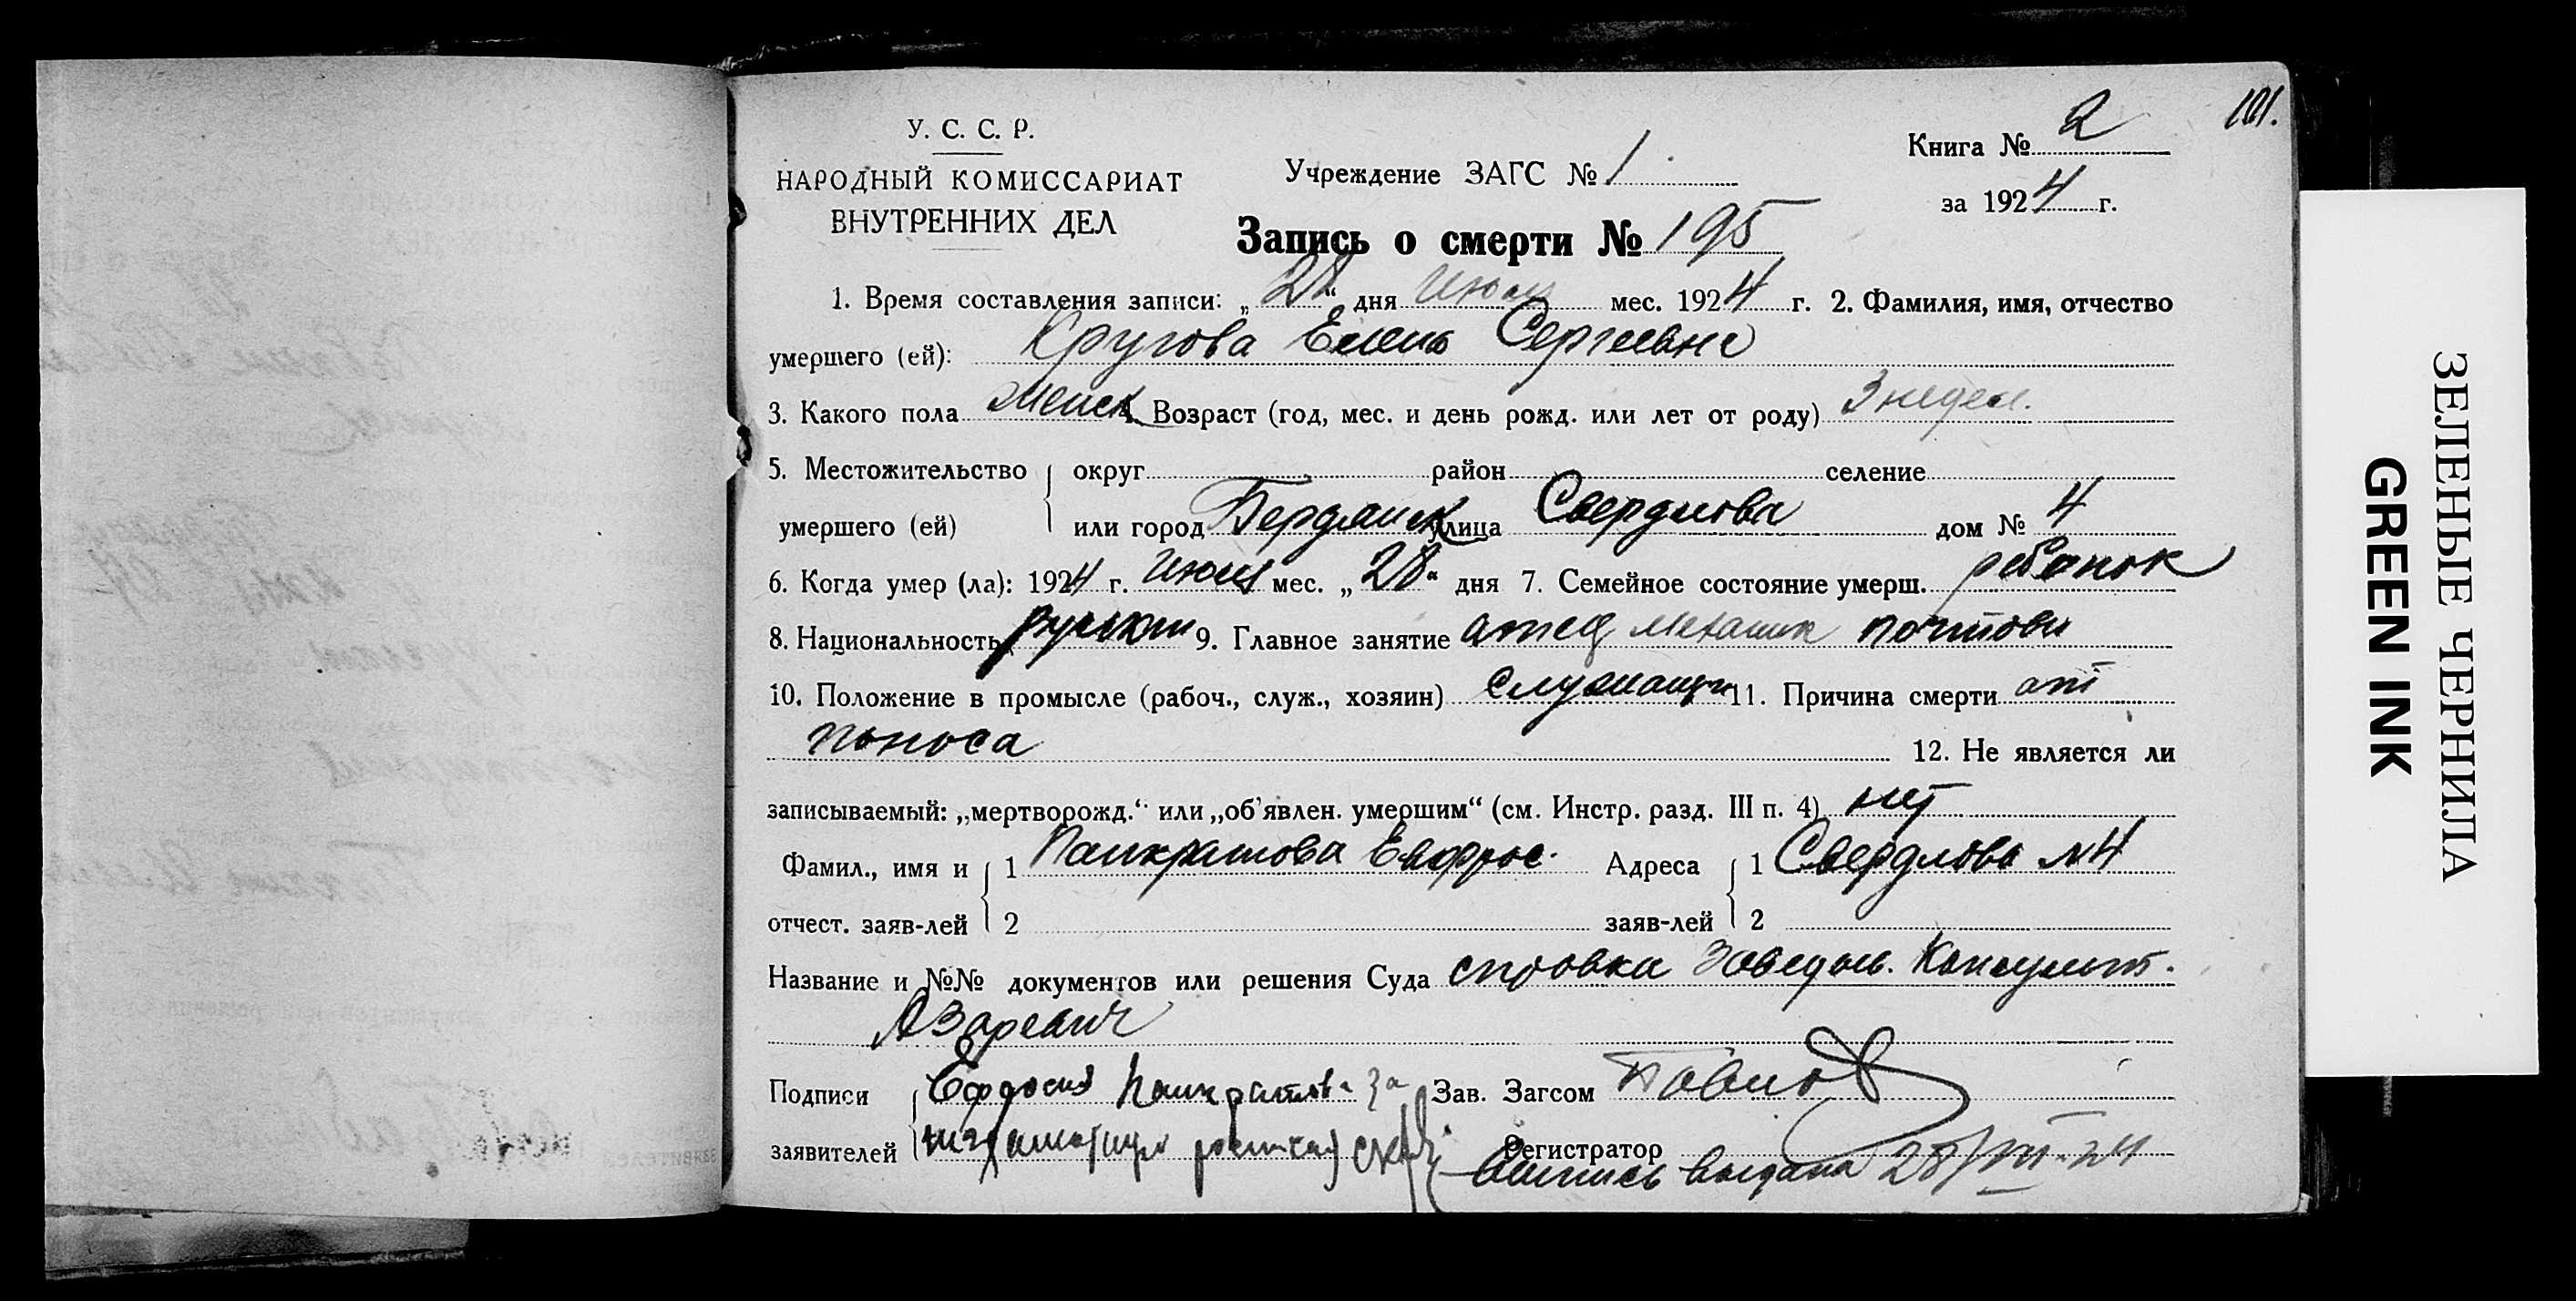 101.
У. С. С. Р.
НАРОДНЫЙ КОМИССАРИАТ
ВНУТРЕННИХ ДЕЛ
Учреждение ЗАГС № 1
Книга № 2
за 1924 г.
Запись о смерти № 195
1. Время составления записи: „28“ дня июля мес. 1924 г. 2. Фамилия, имя, отчество
умершего (ей): Кругова Елена Сергеевна
3. Какого пола женск 4. Возраст (год, мес. и день рожд. или лет от роду) 3 недел.
5. Местожительство округ район селение
умершего (ей) или город Бердянск улица Свердлова дом № 4
6. Когда умер (ла): 1924 г. июля мес. „28“ дня 7. Семейное состояние умерш. ребенок
8. Национальность 9. Главное занятие отец механик почтовы
10. Положение в промысле (рабоч., служ., хозяин) служащи 11. Причина смерти от
поноса 12. Не является ли
записываемый: „мертворожд.“ или „об'явлен. умершим“ (см. Инстр. разд. III п. 4) нет
Фамил., имя и 1 Панкратова Евфрос. Адреса 1 Свердлова №4
отчест. заяв-лей 2 заяв-лей 2
Название и №№ документов или решения Суда справка Заведыв. Консульт.
Азаревич
Подписи Панкратова за Зав. Загсом Павлов
заявителей Регистратор
Выпись выдана 28/VII-24
ЗЕЛЕНЫЕ ЧЕРНИЛА
GREEN INK